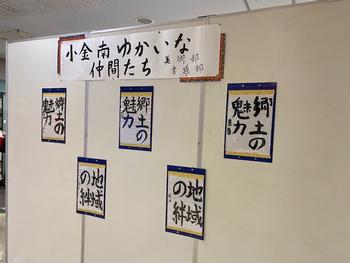 小金南ゆかいな
仲間たち
美術部
書道部
郷土の
魅力
郷土の
魅力
郷土の
魅力
地域
の絆
地域
の絆